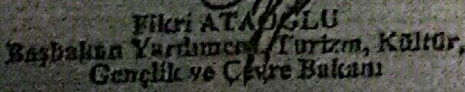 Fikri ATAOĞLU
Başbakan Yardımcısı, Turizm, Kültür,
Gençlik ve Çevre Bakanı